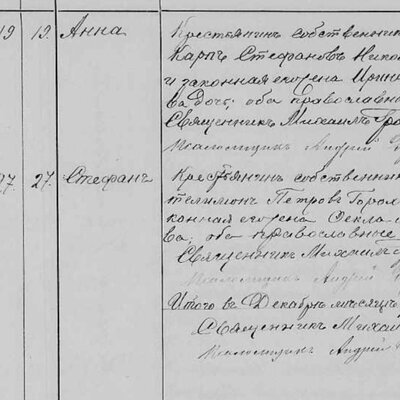 19 19. Анна Крестьянинъ собственникъ
Карпъ Стефановъ Никол
и законная его жена Ирин
ва дочь; оба православн
Священникъ Михаилъ Гро
Псаломщикъ Андрей
27. 27. Стефанъ Крестьянинъ собственникъ
телимонъ Петровъ Горох
конная его жена Ѳекла
ва; оба православные
Священникъ Михаилъ
Псаломщикъ Андрей
Итого въ Декабрѣ мѣсяцѣ
Священникъ Михаи
Псаломщикъ Андрей